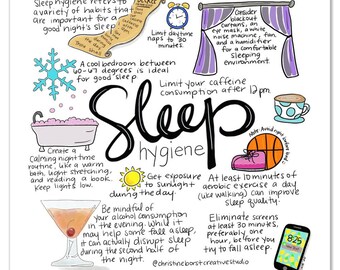 Sleep hygiene refers to
a variety of habits that
are important for a
good night's sleep.
Limit daytime
naps to 30
minutes.
Consider
blackout
curtains, an
eye mask, a white
noise machine, fan,
and a humidifier
for a comfortable
sleeping
environment.
A cool bedroom between
60-67 degrees is ideal
for good sleep
Limit your caffeine
consumption after 12pm.
Sleep
hygiene
Create a
calming nighttime
routine, like a warm
bath, light stretching,
and reading a book.
Keep lights low.
Get exposure
to sunlight
during the day.
At least 10 minutes of
aerobic exercise a day
(like walking) can improve
sleep quality.
Be mindful of
your alcohol consumption
in the evening. While it
may help some fall asleep,
it can actually disrupt sleep
during the second half of
the night.
Eliminate screens
at least 30 minutes,
preferably one
hour, before you
try to fall asleep.
8:25
@christineborstcreativestudio